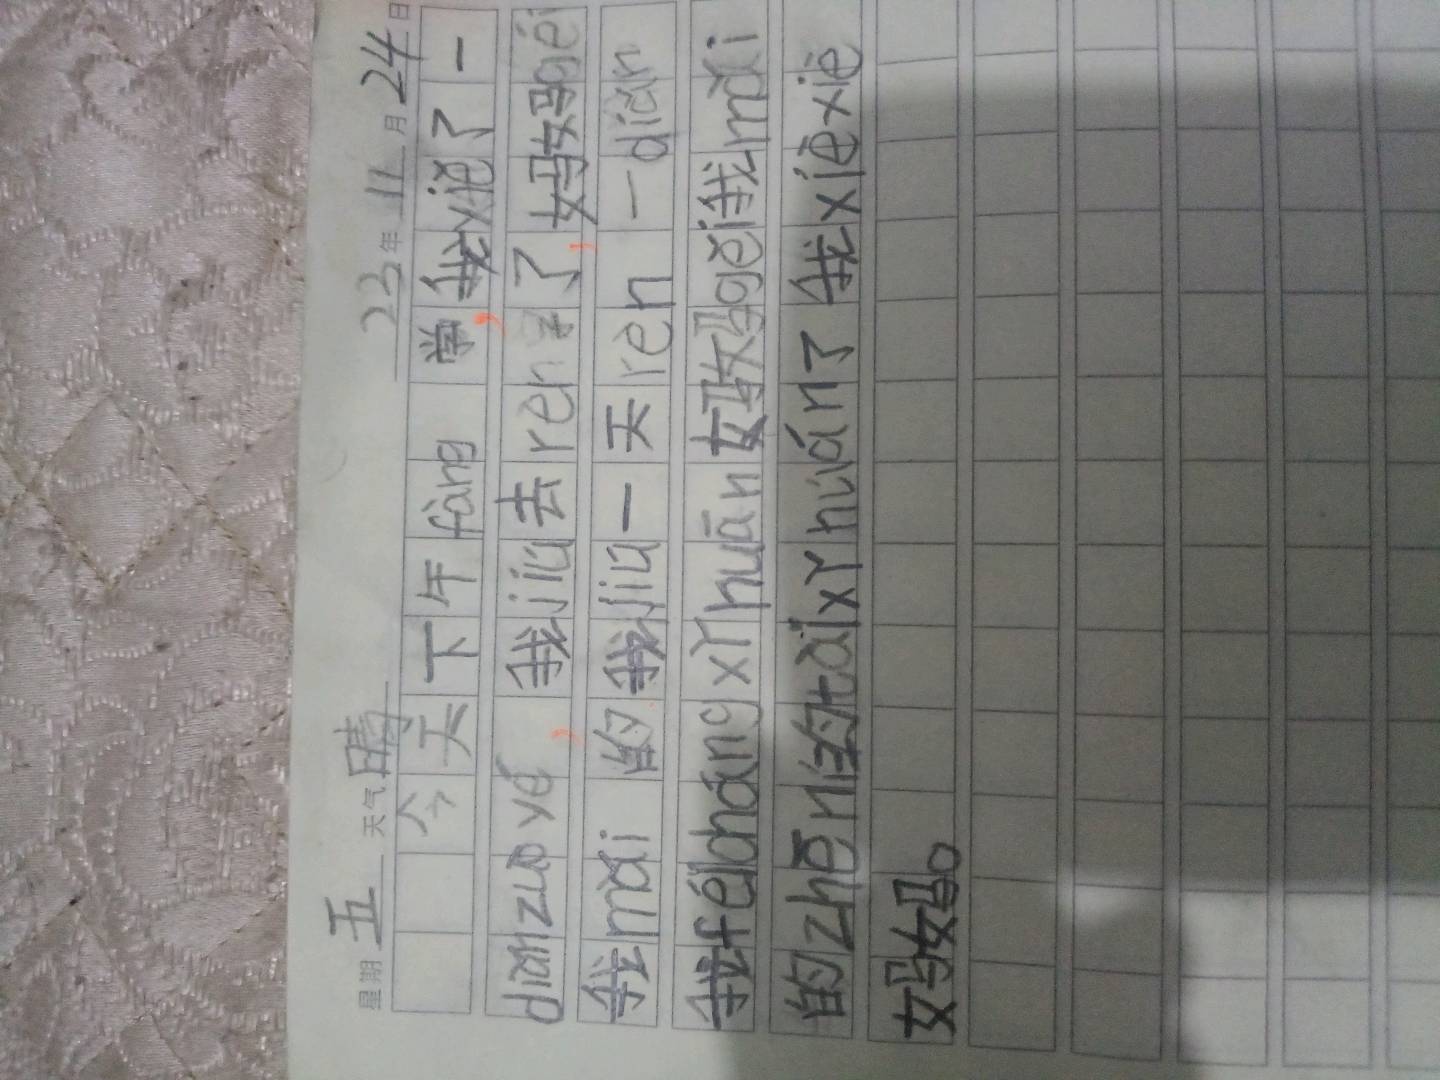 星期五 天气晴 23年11月24日
今天下午fàng学,我xiě了一
diǎnzuoyé,我jiù去ren了,妈妈géi
我mǎi的我jiù一天ren一diǎn
我féicháng xǐhuān妈妈gěi我mǎi
的zhēn的tài xǐhuán了我xièxiè
妈妈。